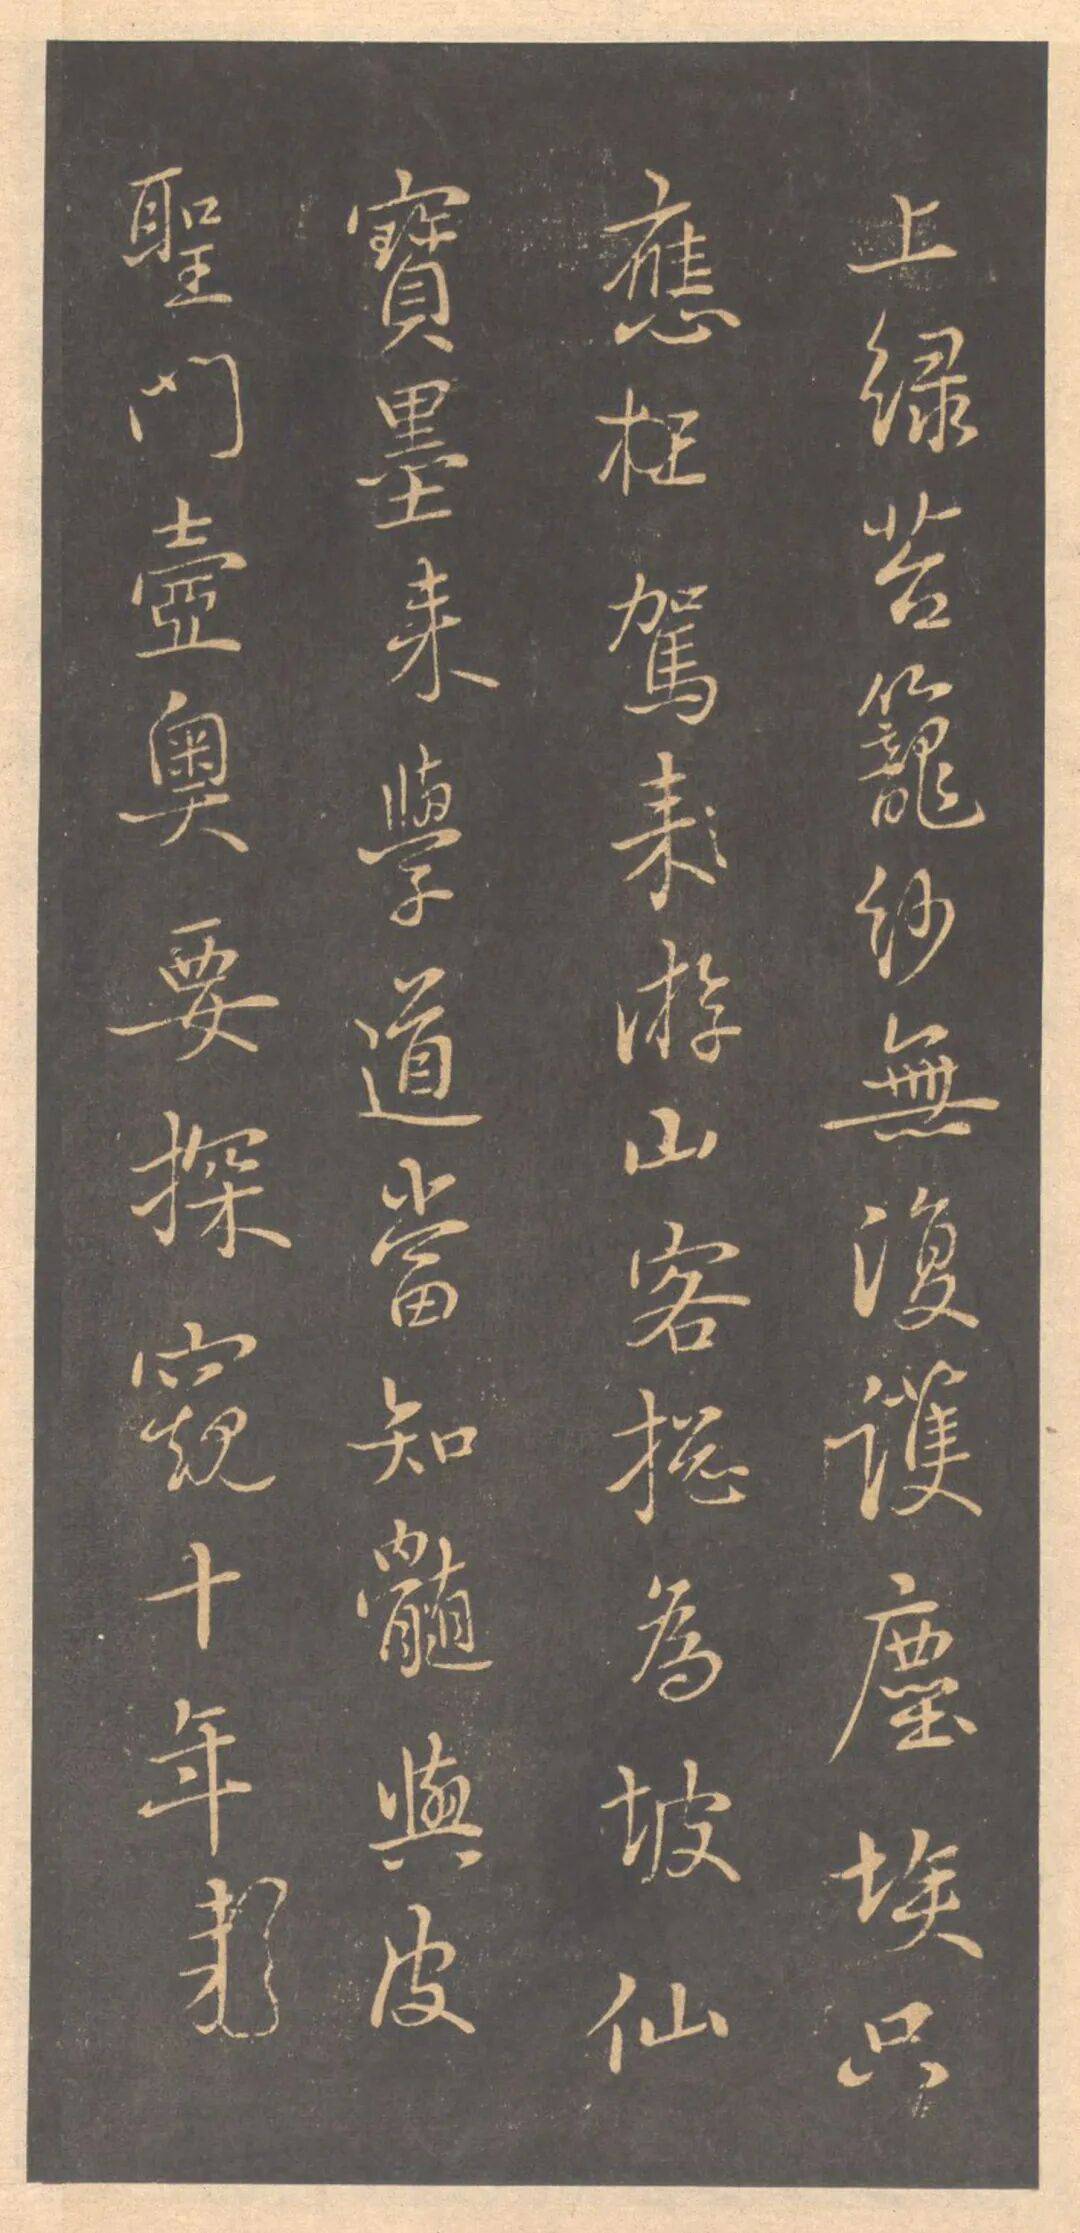 上緑苔籠紗無復護塵埃只
應枉駕来游山客揔為坡仙
寶墨来學道當知髓與皮
聖門壼奥要探窺十年